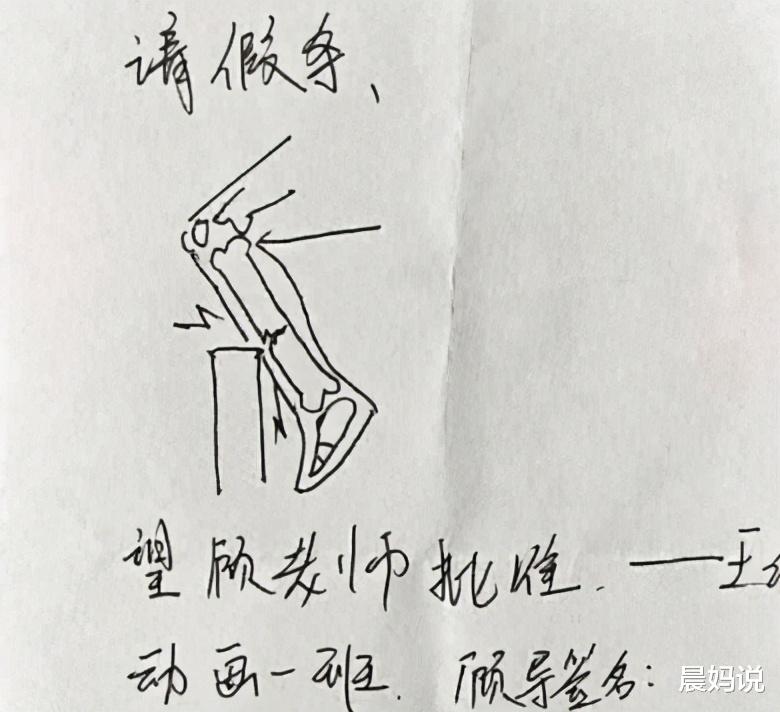 请假条、
望顾老师批准. ——王
动画一班. 顾导签名:
晨妈说